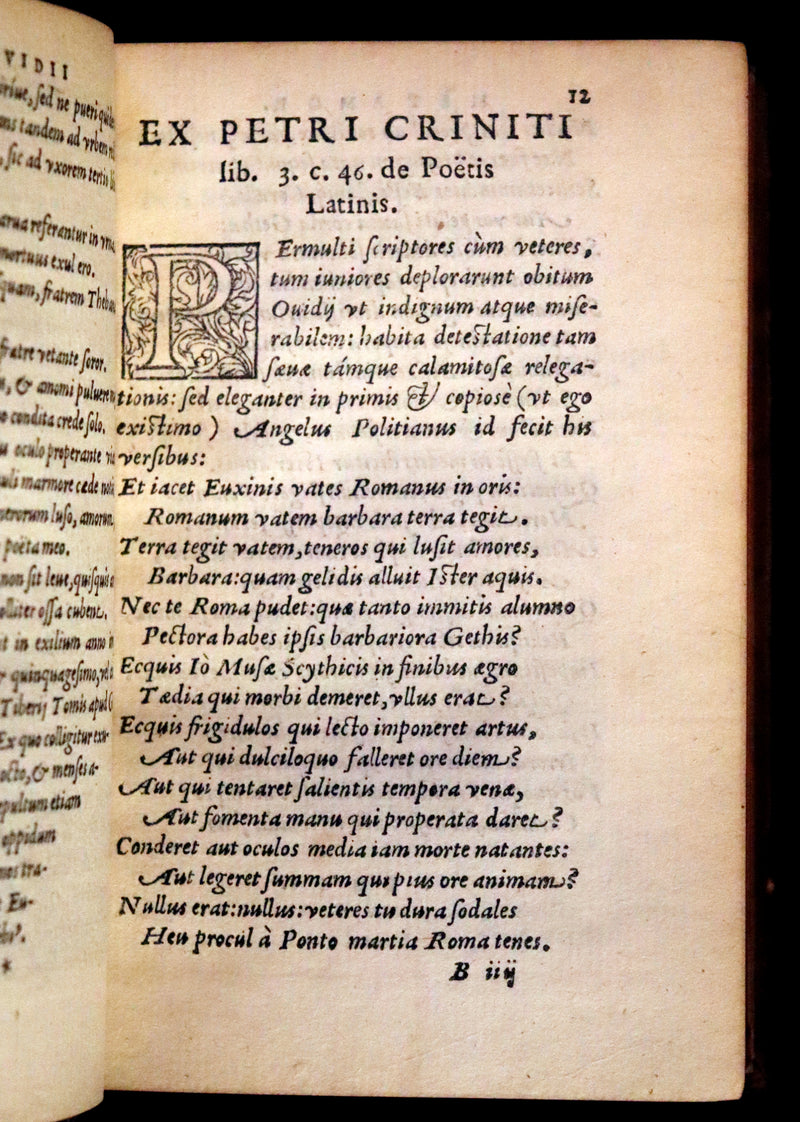 VIDII
sed ne pueri
tandem ad vrbem
sic ad vxorem
referantur in
exul ero.
fratrem
vetante soror.
& amomi
condita crede solo.
oculo properante
marmore cæde
luso, amorum
poeta meo.
non sit leue, quisquis
ossa cubent.
in exilium anno
quinquagesimo,
Tiberij Tomis
Ex quo colligitur
& menses
etiam
oppidum
12
EX PETRI CRINITI
lib. 3. c. 46. de Poëtis
Latinis.
PErmulti scriptores cùm veteres,
tum iuniores deplorarunt obitum
Ouidij vt indignum atque mise-
rabilem: habita detestatione tam
sæuæ támque calamitosæ relega-
tionis: sed eleganter in primis & copiosè (vt ego
existimo) Angelus Politianus id fecit his
versibus:
Et iacet Euxinis vates Romanus in oris:
Romanum vatem barbara terra tegit.
Terra tegit vatem, teneros qui lusit amores,
Barbara: quam gelidis alluit Ister aquis.
Nec te Roma pudet: quæ tanto immitis alumno
Pectora habes ipsis barbariora Gethis?
Ecquis Iò Musæ Scythicis in finibus ægro
Tædia qui morbi demeret, vllus erat?
Ecquis frigidulos qui lecto imponeret artus,
Aut qui dulciloquo falleret ore diem?
Aut qui tentaret salientis tempora venæ,
Aut fomenta manu qui properata daret?
Conderet aut oculos media iam morte natantes:
Aut legeret summam qui pius ore animam?
Nullus erat: nullus: veteres tu dura sodales
Heu procul à Ponto martia Roma tenes.
B iiij